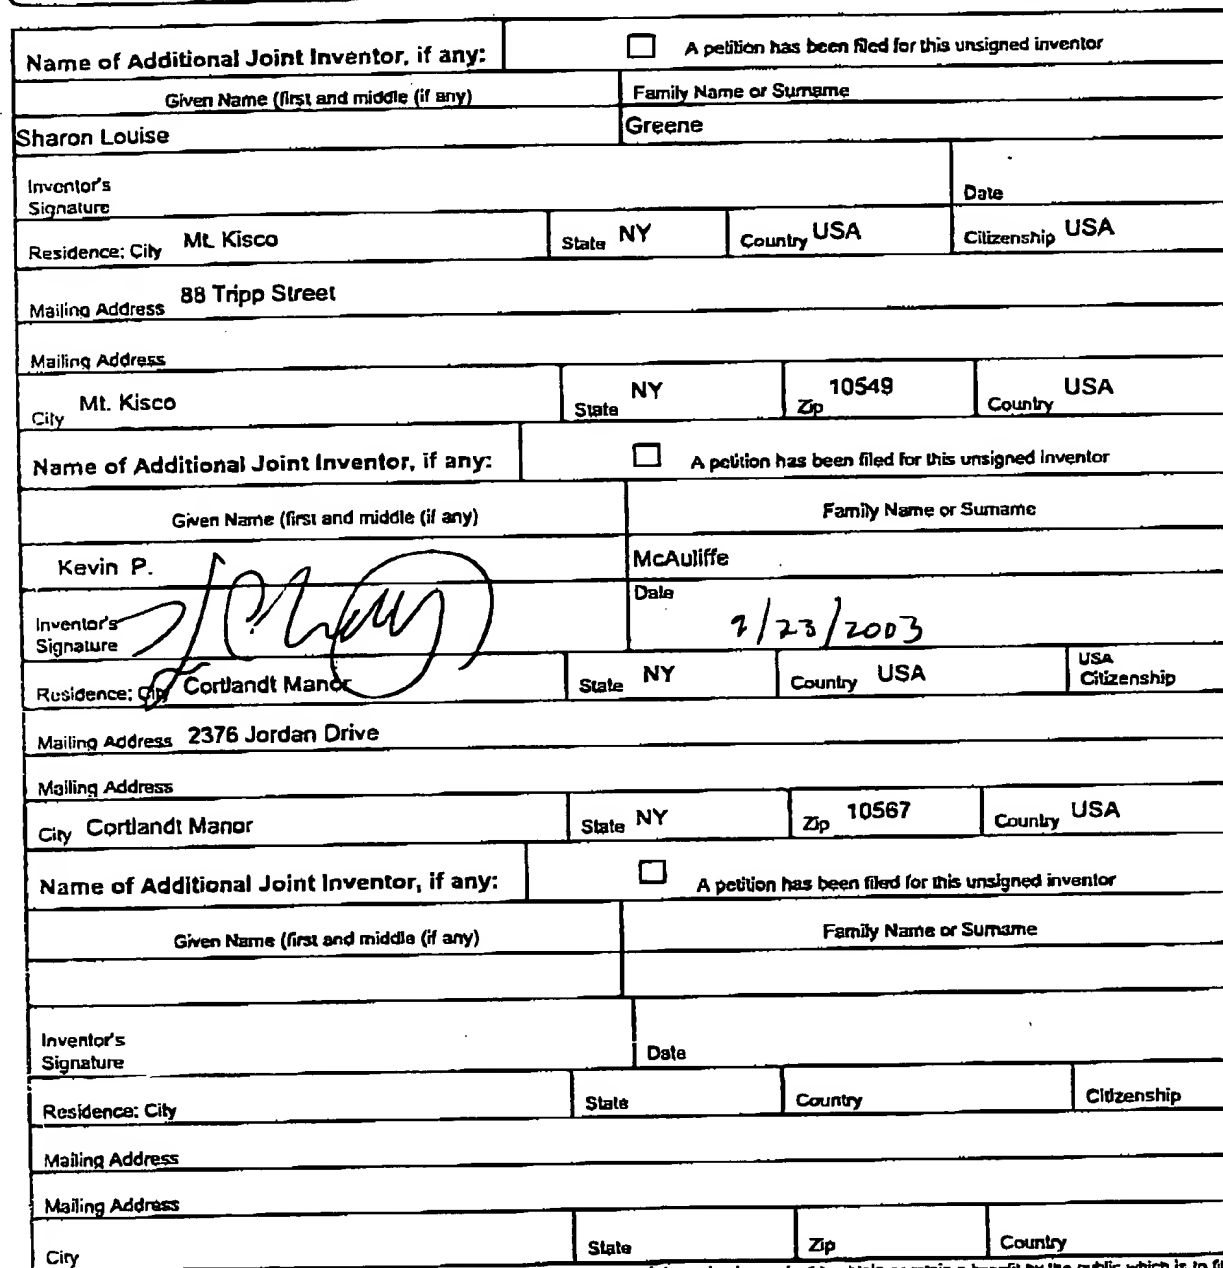 Name of Additional Joint Inventor, if any: A petition has been filed for this unsigned inventor
Given Name (first and middle (if any) Family Name or Surname
Sharon Louise Greene
Inventor's
Signature Date
Residence: City Mt. Kisco State NY Country USA Citizenship USA
Mailing Address 88 Tripp Street
Mailing Address
City Mt. Kisco State NY Zip 10549 Country USA
Name of Additional Joint Inventor, if any: A petition has been filed for this unsigned inventor
Given Name (first and middle (if any) Family Name or Surname
Kevin P. McAuliffe
Inventor's
Signature Date /23/2003
Residence: City Cortlandt Manor State NY Country USA USA
Citizenship
Mailing Address 2376 Jordan Drive
Mailing Address
City Cortlandt Manor State NY Zip 10567 Country USA
Name of Additional Joint Inventor, if any: A petition has been filed for this unsigned inventor
Given Name (first and middle (if any) Family Name or Surname
Inventor's
Signature Date
Residence: City State Country Citizenship
Mailing Address
Mailing Address
City State Zip Country